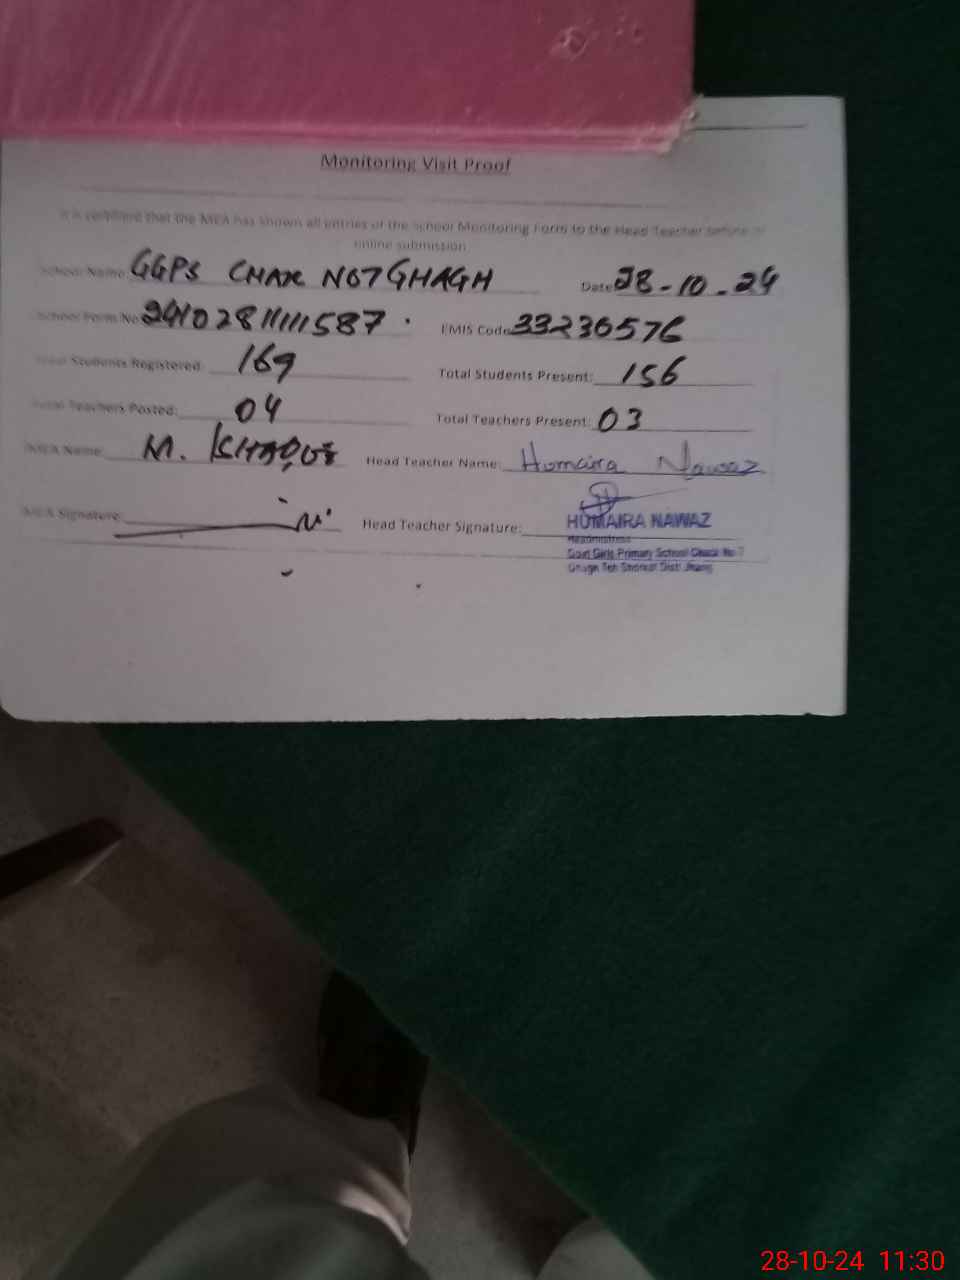 Monitoring Visit Proof
It is certified that the MEA has shown all entries of the School Monitoring Form to the Head Teacher before
online submission
School Name: GGPS CHAK NO7 GHAGH Date: 28-10-24
School Form No: 24102811111587 . EMIS Code: 33230576
Total Students Registered: 169 Total Students Present: 156
Total Teachers Posted: 04 Total Teachers Present: 03
MEA Name: M. Head Teacher Name: Homaira Nawaz
MEA Signature: Head Teacher Signature:
HUMAIRA NAWAZ
Headmistress
Govt Girls Primary School Chack No 7
Ghagh Teh Shorkot Distt Jhang
28-10-24 11:30